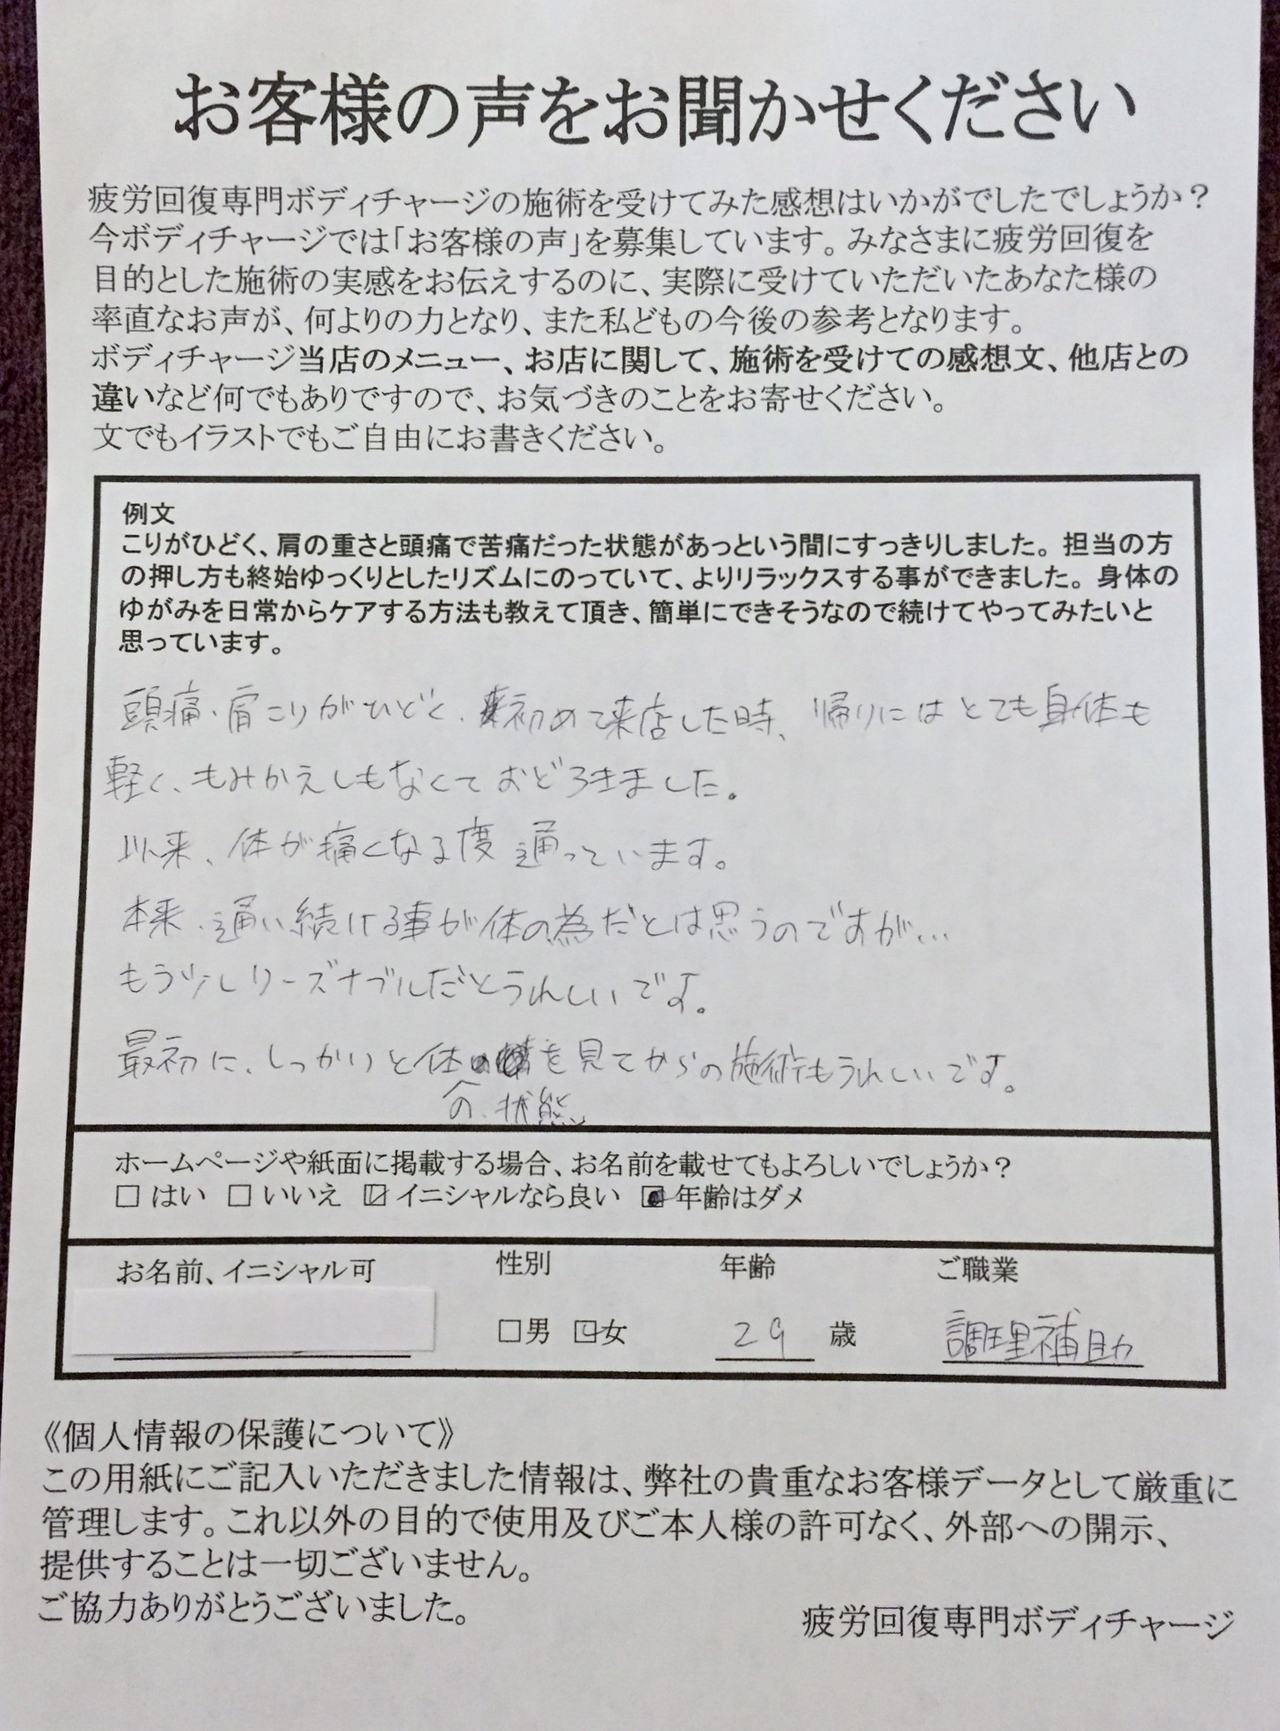 お客様の声をお聞かせください
疲労回復専門ボディチャージの施術を受けてみた感想はいかがでしたでしょうか？
今ボディチャージでは「お客様の声」を募集しています。みなさまに疲労回復を
目的とした施術の実感をお伝えするのに、実際に受けていただいたあなた様の
率直なお声が、何よりの力となり、また私どもの今後の参考となります。
ボディチャージ当店のメニュー、お店に関して、施術を受けての感想文、他店との
違いなど何でもありですので、お気づきのことをお寄せください。
文でもイラストでもご自由にお書きください。
例文
こりがひどく、肩の重さと頭痛で苦痛だった状態があっという間にすっきりしました。担当の方
の押し方も終始ゆっくりとしたリズムにのっていて、よりリラックスする事ができました。身体の
ゆがみを日常からケアする方法も教えて頂き、簡単にできそうなので続けてやってみたいと
思っています。
頭痛・肩こりがひどく、初めて来店した時、帰りにはとても身体も
軽く、もみかえしもなくておどろきました。
以来、体が痛くなる度通っています。
本来、通い続ける事が体の為だとは思うのですが…
もう少しリーズナブルだとうれしいです。
最初に、しっかりと体の状態を見てからの施術もうれしいです。
ホームページや紙面に掲載する場合、お名前を載せてもよろしいでしょうか？
□ はい □ いいえ ☑ イニシャルなら良い ■ 年齢はダメ
お名前、イニシャル可 性別 年齢 ご職業
□男 ☑女 29 歳 調理補助
《個人情報の保護について》
この用紙にご記入いただきました情報は、弊社の貴重なお客様データとして厳重に
管理します。これ以外の目的で使用及びご本人様の許可なく、外部への開示、
提供することは一切ございません。
ご協力ありがとうございました。
疲労回復専門ボディチャージ